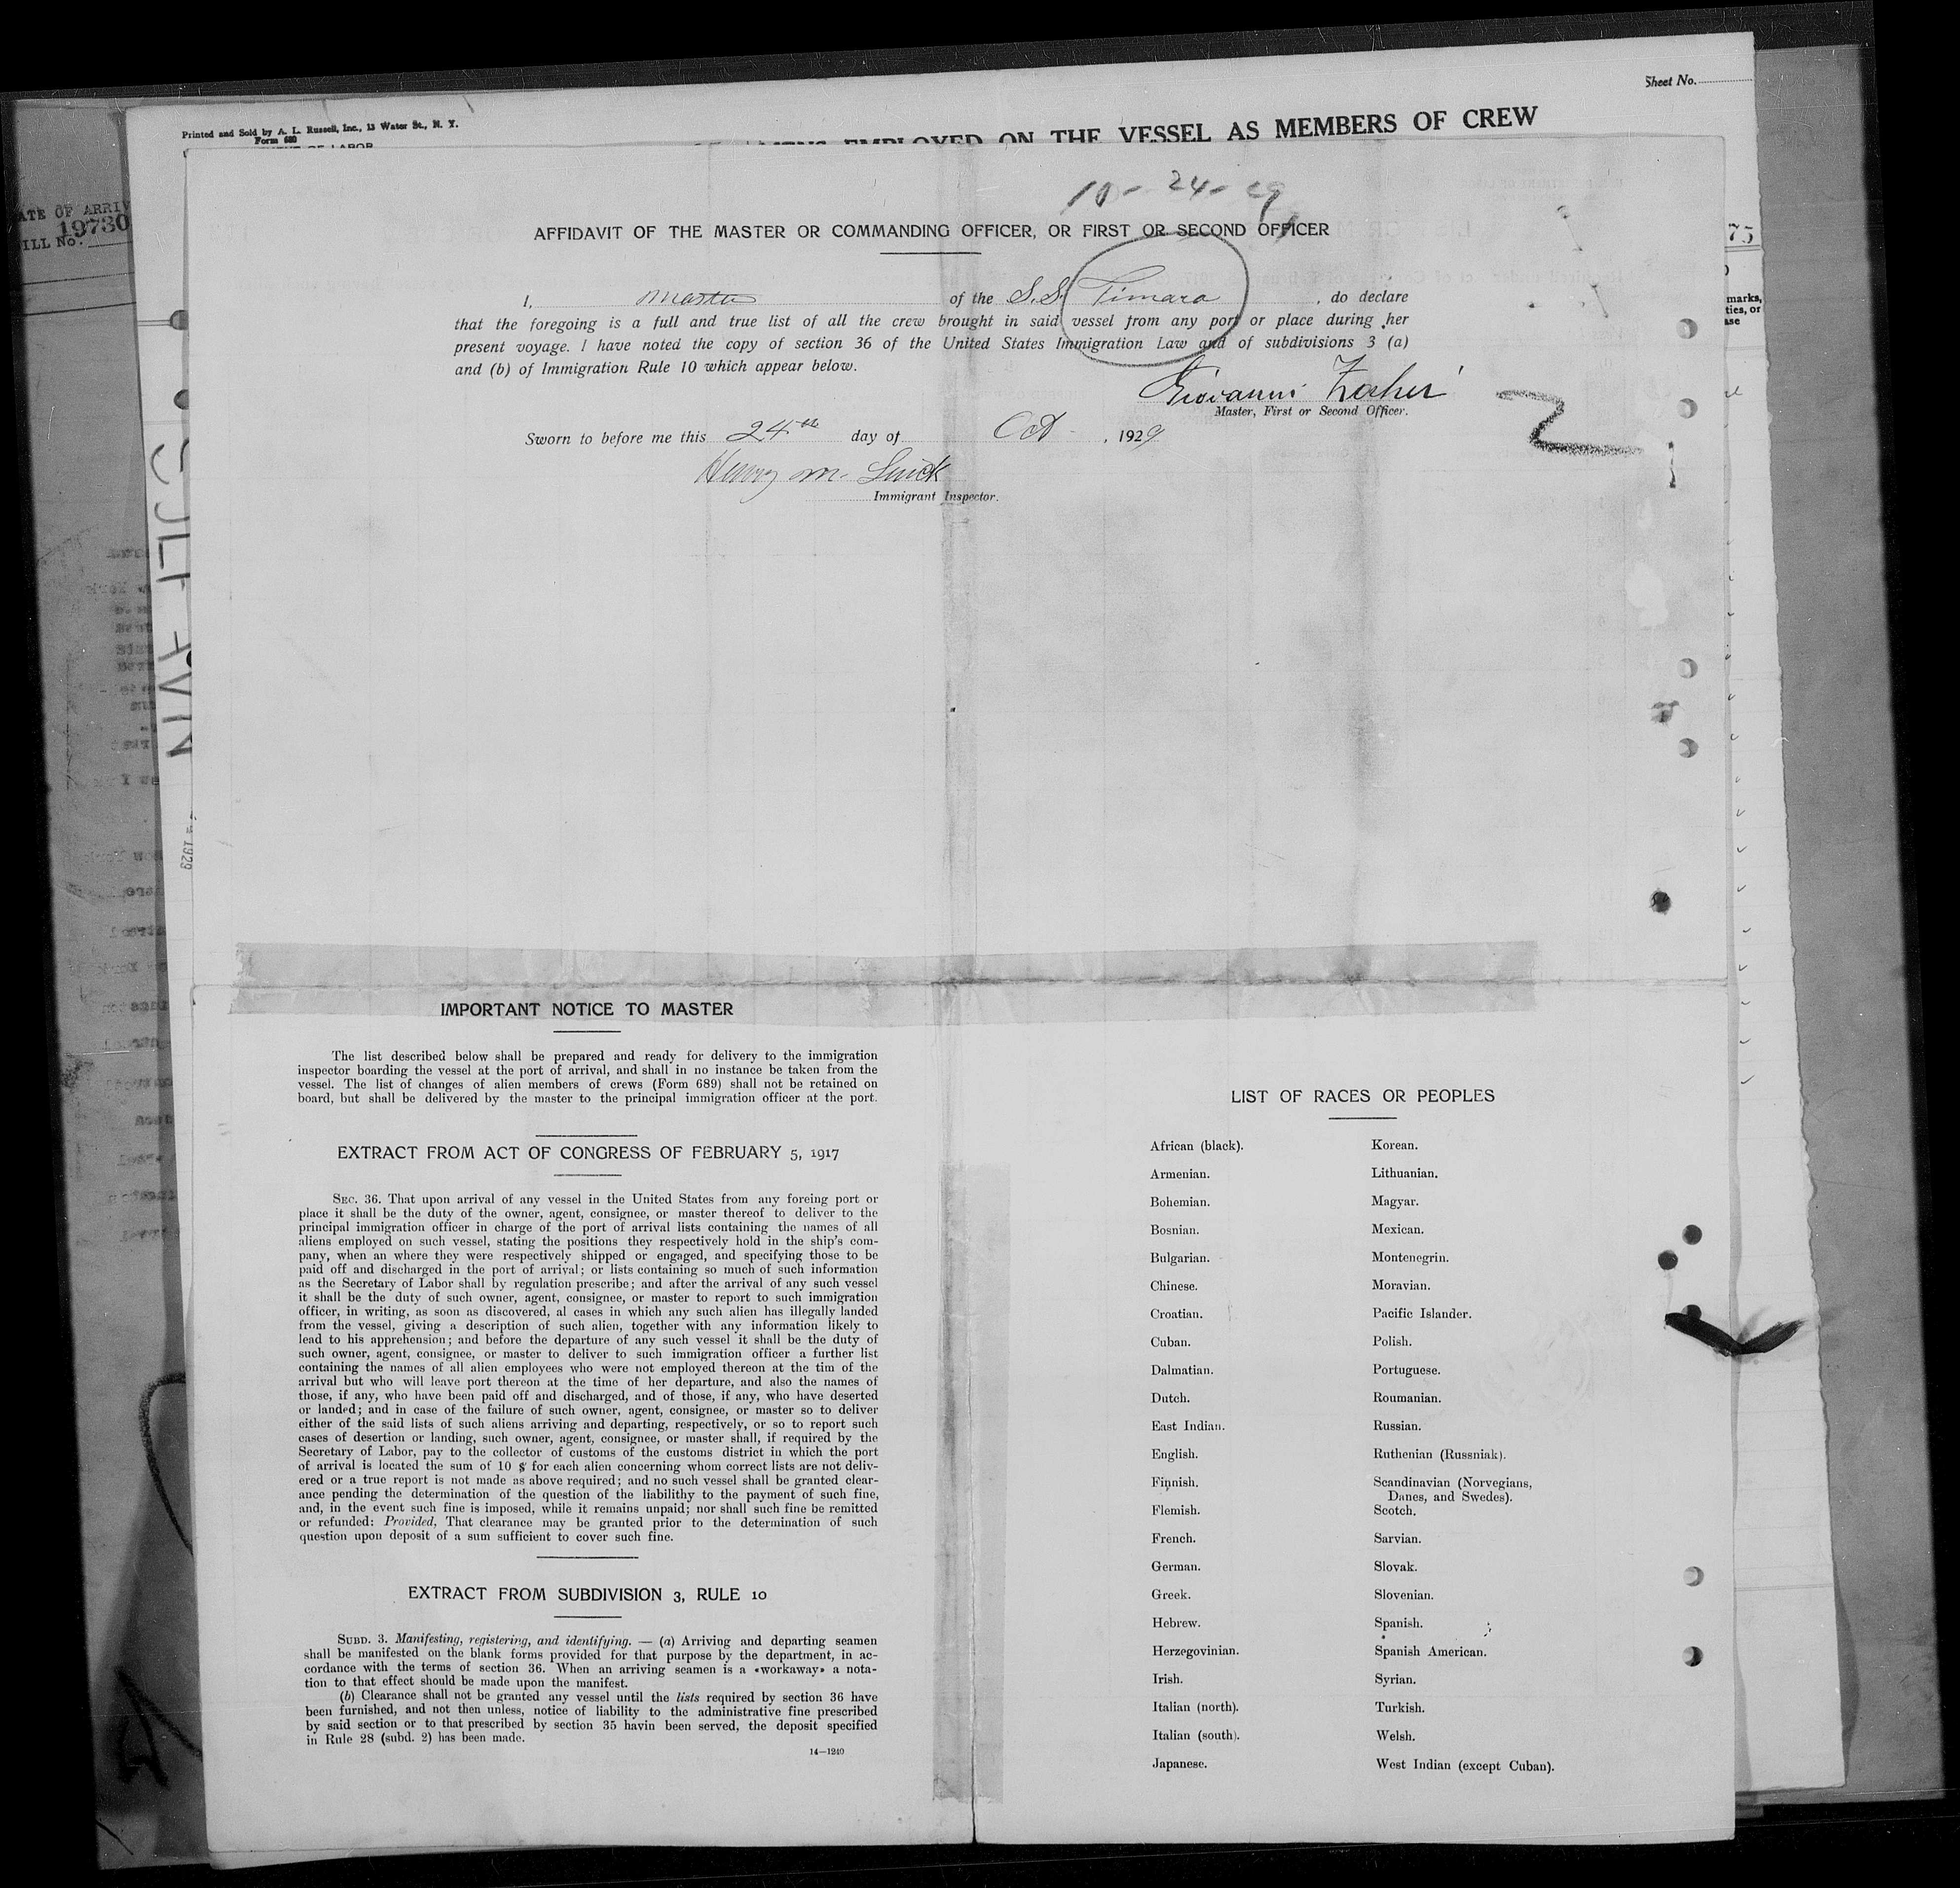 Sheet No.
Printed and Sold by A. L. Russell, Inc., 13 Water St., N. Y.
Form 689
EMPLOYED ON THE VESSEL AS MEMBERS OF CREW
ATE OF ARRIV
19730
ILL No.
75
marks,
ties, or
ase
10-24-29
AFFIDAVIT OF THE MASTER OR COMMANDING OFFICER, OR FIRST OR SECOND OFFICER
I, Master of the S.S. Timara, do declare
that the foregoing is a full and true list of all the crew brought in said vessel from any port or place during her
present voyage. I have noted the copy of section 36 of the United States Immigration Law and of subdivisions 3 (a)
and (b) of Immigration Rule 10 which appear below.
Giovanni
Master, First or Second Officer.
Sworn to before me this 24th day of Oct, 1929
Henry M.
Immigrant Inspector.
1929
IMPORTANT NOTICE TO MASTER
The list described below shall be prepared and ready for delivery to the immigration
inspector boarding the vessel at the port of arrival, and shall in no instance be taken from the
vessel. The list of changes of alien members of crews (Form 689) shall not be retained on
board, but shall be delivered by the master to the principal immigration officer at the port.
EXTRACT FROM ACT OF CONGRESS OF FEBRUARY 5, 1917
SEC. 36. That upon arrival of any vessel in the United States from any foreing port or
place it shall be the duty of the owner, agent, consignee, or master thereof to deliver to the
principal immigration officer in charge of the port of arrival lists containing the names of all
aliens employed on such vessel, stating the positions they respectively hold in the ship's com-
pany, when an where they were respectively shipped or engaged, and specifying those to be
paid off and discharged in the port of arrival; or lists containing so much of such information
as the Secretary of Labor shall by regulation prescribe; and after the arrival of any such vessel
it shall be the duty of such owner, agent, consignee, or master to report to such immigration
officer, in writing, as soon as discovered, al cases in which any such alien has illegally landed
from the vessel, giving a description of such alien, together with any information likely to
lead to his apprehension; and before the departure of any such vessel it shall be the duty of
such owner, agent, consignee, or master to deliver to such immigration officer a further list
containing the names of all alien employees who were not employed thereon at the tim of the
arrival but who will leave port thereon at the time of her departure, and also the names of
those, if any, who have been paid off and discharged, and of those, if any, who have deserted
or landed; and in case of the failure of such owner, agent, consignee, or master so to deliver
either of the said lists of such aliens arriving and departing, respectively, or so to report such
cases of desertion or landing, such owner, agent, consignee, or master shall, if required by the
Secretary of Labor, pay to the collector of customs of the customs district in which the port
of arrival is located the sum of 10 $ for each alien concerning whom correct lists are not deliv-
ered or a true report is not made as above required; and no such vessel shall be granted clear-
ance pending the determination of the question of the liabilithy to the payment of such fine,
and, in the event such fine is imposed, while it remains unpaid; nor shall such fine be remitted
or refunded: Provided, That clearance may be granted prior to the determination of such
question upon deposit of a sum sufficient to cover such fine.
EXTRACT FROM SUBDIVISION 3, RULE 10
SUBD. 3. Manifesting, registering, and identifying. — (a) Arriving and departing seamen
shall be manifested on the blank forms provided for that purpose by the department, in ac-
cordance with the terms of section 36. When an arriving seamen is a «workaway» a nota-
tion to that effect should be made upon the manifest.
(b) Clearance shall not be granted any vessel until the lists required by section 36 have
been furnished, and not then unless, notice of liability to the administrative fine prescribed
by said section or to that prescribed by section 35 havin been served, the deposit specified
in Rule 28 (subd. 2) has been made.
14—1240
LIST OF RACES OR PEOPLES
African (black). Korean.
Armenian. Lithuanian.
Bohemian. Magyar.
Bosnian. Mexican.
Bulgarian. Montenegrin.
Chinese. Moravian.
Croatian. Pacific Islander.
Cuban. Polish.
Dalmatian. Portuguese.
Dutch. Roumanian.
East Indian. Russian.
English. Ruthenian (Russniak).
Finnish. Scandinavian (Norvegians,
Danes, and Swedes).
Flemish. Scotch.
French. Sarvian.
German. Slovak.
Greek. Slovenian.
Hebrew. Spanish.
Herzegovinian. Spanish American.
Irish. Syrian.
Italian (north). Turkish.
Italian (south). Welsh.
Japanese. West Indian (except Cuban).